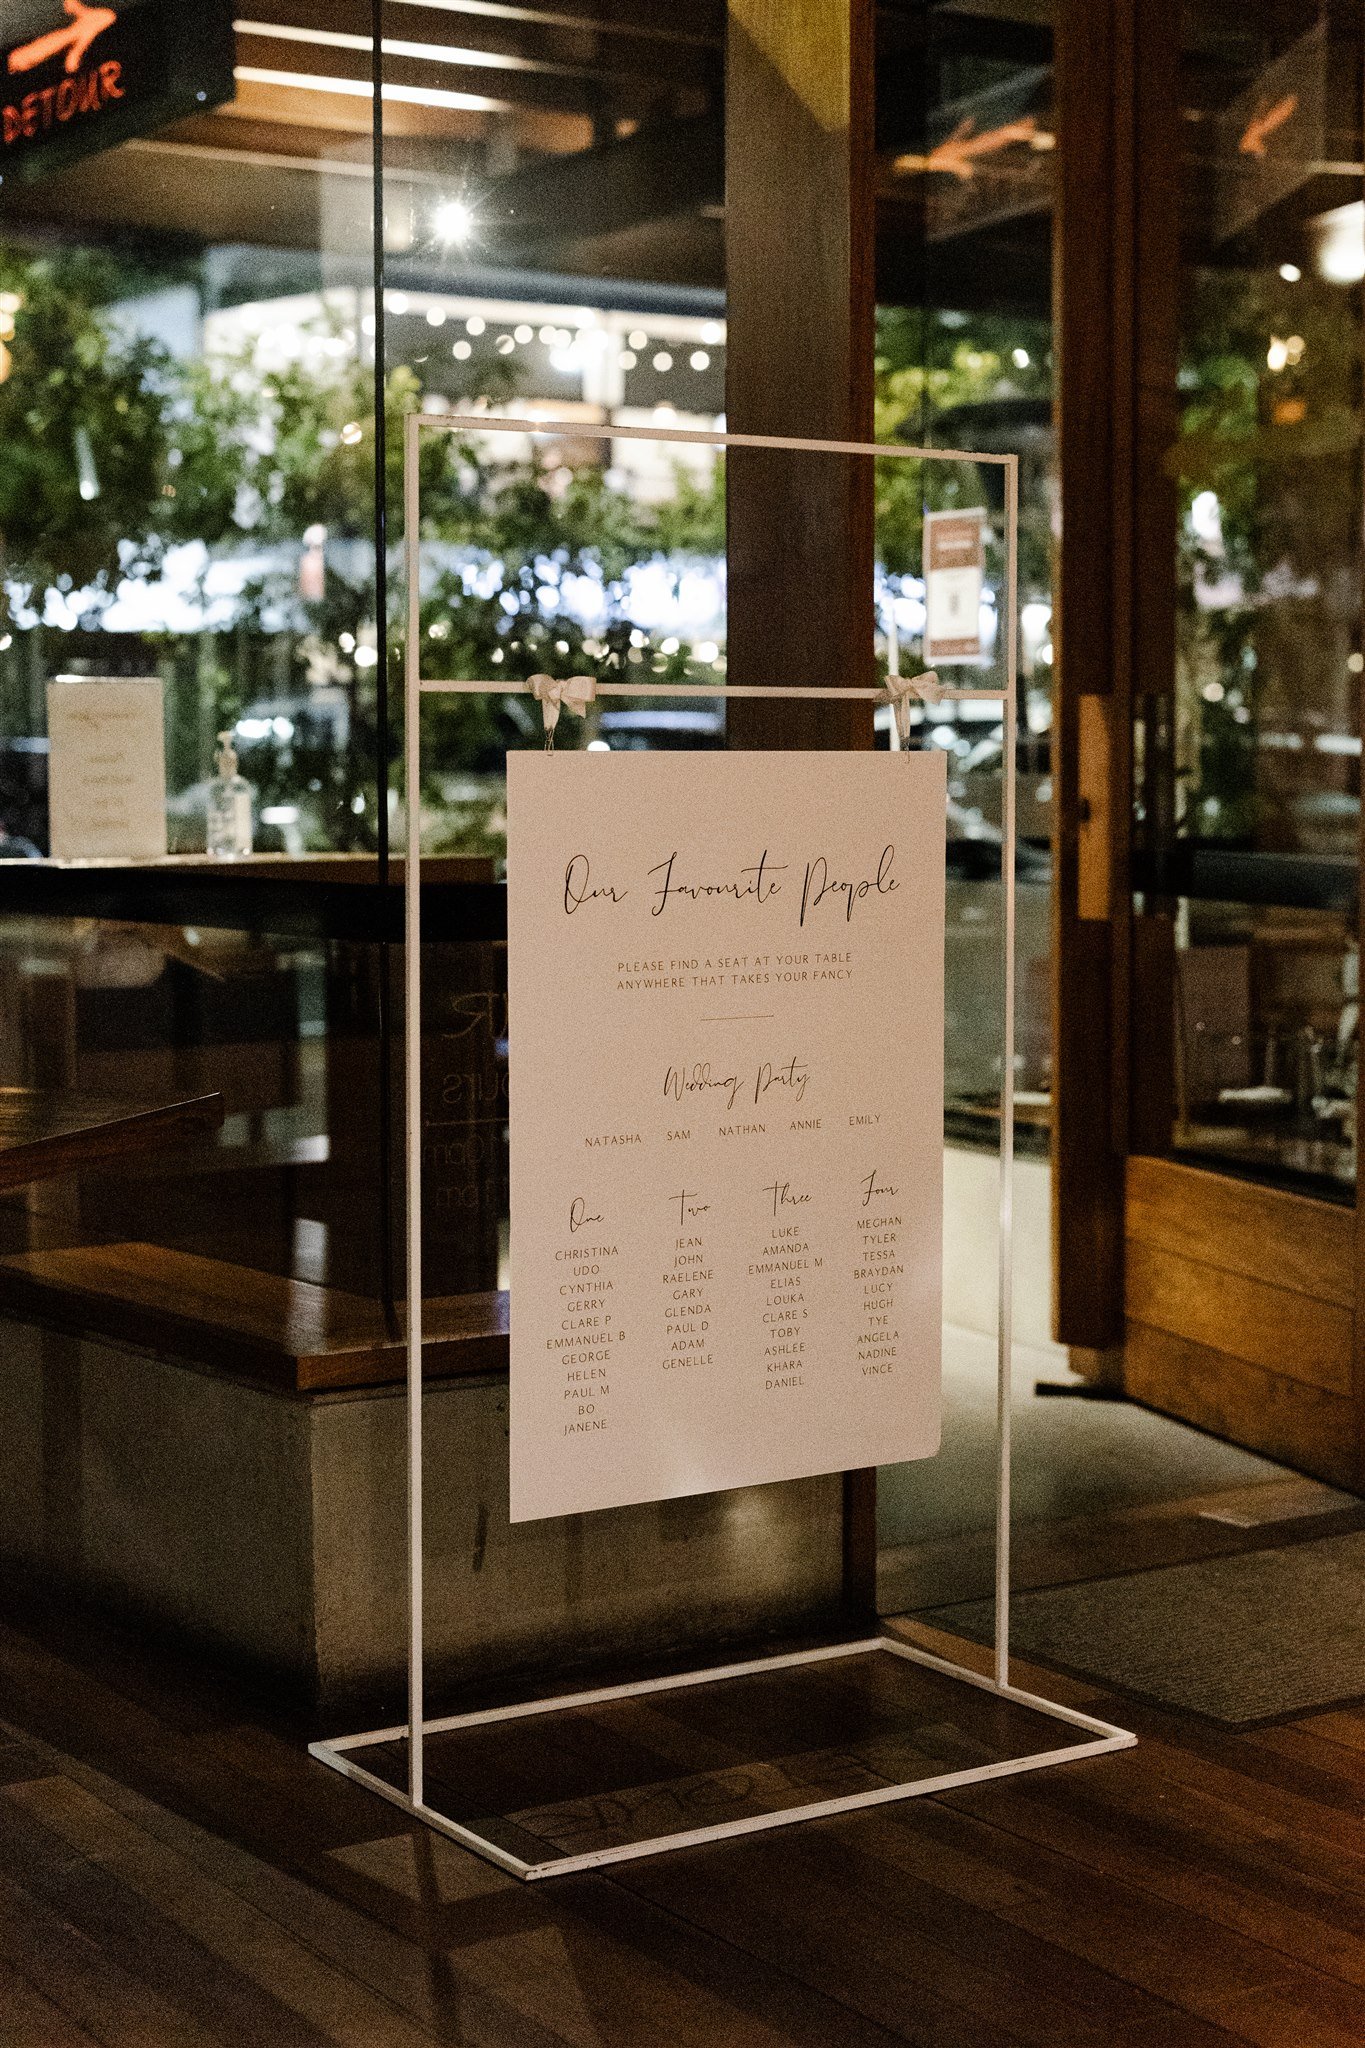 DETOUR
Our Favourite People
PLEASE FIND A SEAT AT YOUR TABLE
ANYWHERE THAT TAKES YOUR FANCY
Wedding Party
NATASHA SAM NATHAN ANNIE EMILY
One
CHRISTINA
UDO
CYNTHIA
GERRY
CLARE P
EMMANUEL B
GEORGE
HELEN
PAUL M
BO
JANENE
Two
JEAN
JOHN
RAELENE
GARY
GLENDA
PAUL D
ADAM
GENELLE
Three
LUKE
AMANDA
EMMANUEL M
ELIAS
LOUKA
CLARE S
TOBY
ASHLEE
KHARA
DANIEL
Four
MEGHAN
TYLER
TESSA
BRAYDAN
LUCY
HUGH
TYE
ANGELA
NADINE
VINCE